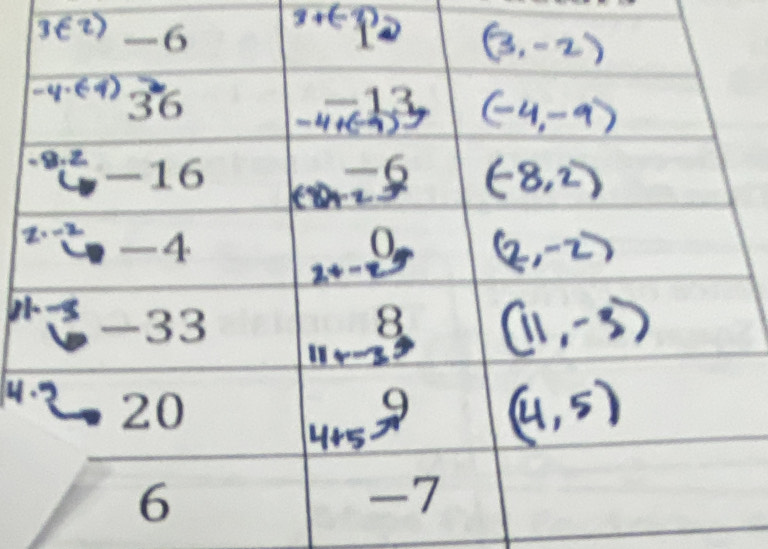 3(-2) -6 3+(-2) 1 (3,-2)
-4·(-9) 36 -13 -4+(-9) (-4,-9)
-8·2 -16 -6 (-8)+2 (-8,2)
2·-2 -4 0 2+-2 (2,-2)
11·-3 -33 8 11+-3 (11,-3)
20 9 4+5 (4,5)
6 -7